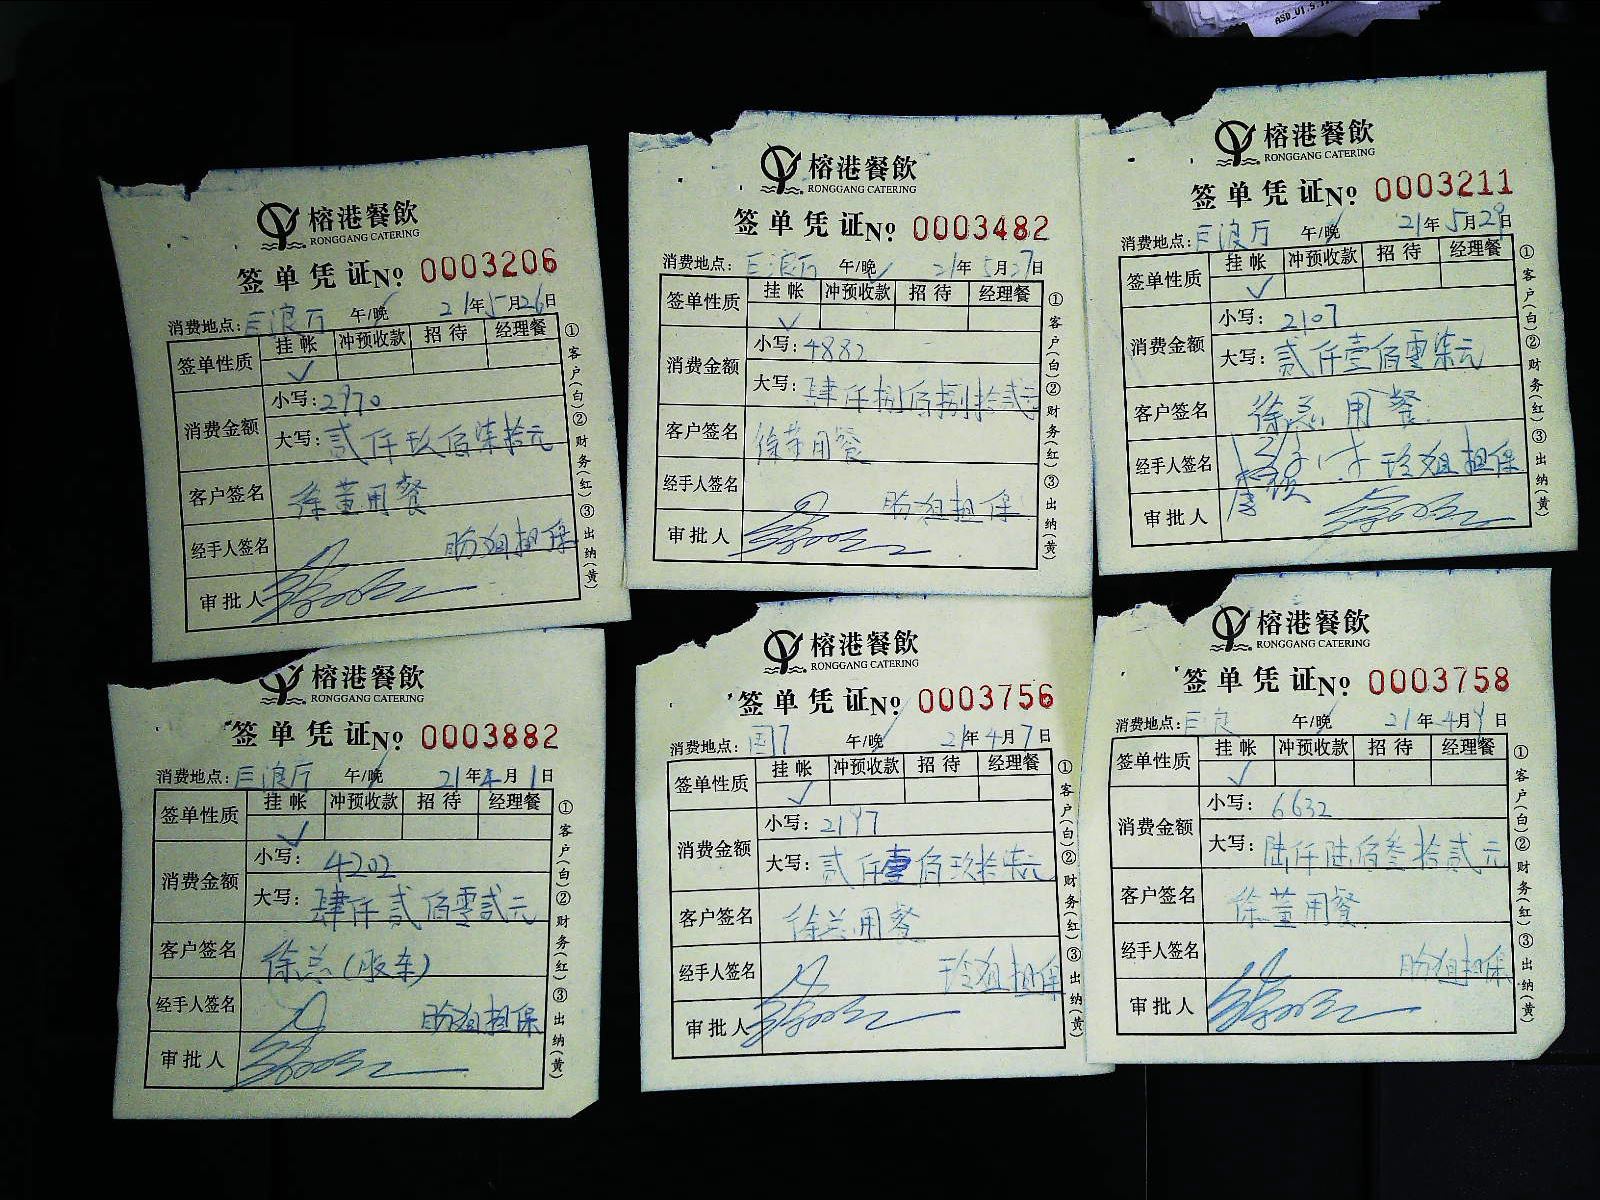 ASD_U1.5.1
榕港餐飲
RONGGANG CATERING
签单凭证No 0003206
消费地点: 巨浪厅 午/晚 21年5月26日
签单性质 挂帐 冲预收款 招待 经理餐
✓
消费金额 小写: 2970
大写: 贰仟玖佰柒拾元
客户签名 徐董用餐
经手人签名 担保
审批人
①客户(白)②财务(红)③出纳(黄)
榕港餐飲
RONGGANG CATERING
签单凭证No 0003482
消费地点: 巨浪厅 午/晚 21年5月27日
签单性质 挂帐 冲预收款 招待 经理餐
✓
消费金额 小写: 4882
大写: 肆仟捌佰捌拾贰元
客户签名 徐董用餐
经手人签名 担保
审批人
①客户(白)②财务(红)③出纳(黄)
榕港餐飲
RONGGANG CATERING
签单凭证No 0003211
消费地点: 巨浪厅 午/晚 21年5月29日
签单性质 挂帐 冲预收款 招待 经理餐
✓
消费金额 小写: 2107
大写: 贰仟壹佰零柒元
客户签名 徐总用餐
经手人签名 玲姐担保
审批人
①客户(白)②财务(红)③出纳(黄)
榕港餐飲
RONGGANG CATERING
签单凭证No 0003882
消费地点: 巨浪厅 午/晚 21年4月1日
签单性质 挂帐 冲预收款 招待 经理餐
✓
消费金额 小写: 4202
大写: 肆仟贰佰零贰元
客户签名 徐总(股东)
经手人签名 担保
审批人
①客户(白)②财务(红)③出纳(黄)
榕港餐飲
RONGGANG CATERING
签单凭证No 0003756
消费地点: 午/晚 21年4月7日
签单性质 挂帐 冲预收款 招待 经理餐
✓
消费金额 小写: 2197
大写: 贰仟壹佰玖拾柒元
客户签名 徐总用餐
经手人签名 玲姐担保
审批人
①客户(白)②财务(红)③出纳(黄)
榕港餐飲
RONGGANG CATERING
签单凭证No 0003758
消费地点: 巨浪 午/晚 21年4月9日
签单性质 挂帐 冲预收款 招待 经理餐
✓
消费金额 小写: 6632
大写: 陆仟陆佰叁拾贰元
客户签名 徐董用餐
经手人签名 担保
审批人
①客户(白)②财务(红)③出纳(黄)